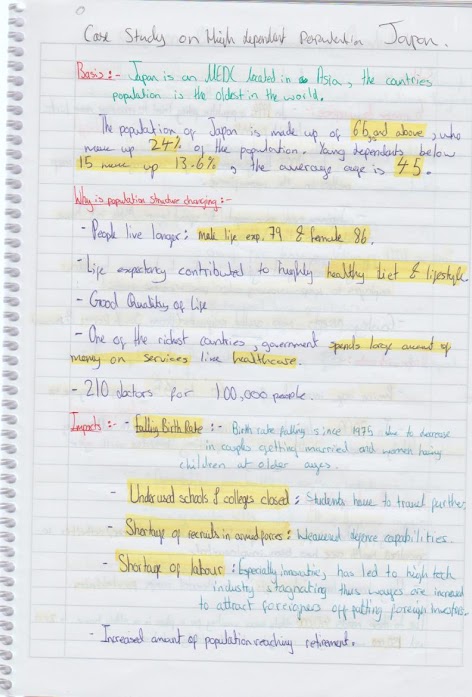 Case Study on High dependent Population Japan.
Basis:- Japan is an MEDC located in Asia, the countries
population is the oldest in the world.
The population of Japan is made up of 65 and above, who
make up 24% of the population. Young dependants below
15 make up 13.6%, the average age is 45.
Why is population structure changing:-
- People live longer: male life exp. 79 & female 86.
- Life expectancy contributed to highly healthy diet & lifestyle
- Good Quality of Life
- One of the richest countries, government spends large amount of
money on services like healthcare.
- 210 doctors for 100,000 people.
Impacts:- - Falling Birth Rate:- Birth rate falling since 1975 due to decrease
in couples getting married and women having
children at older ages.
- Underused schools & colleges closed: Students have to travel further.
- Shortage of recruits in armed forces: Weakened defence capabilities.
- Shortage of labour: Especially innovative, has led to high tech
industry stagnating thus wages are increased
to attract foreigners off putting foreign
- Increased amount of population reaching retirement.